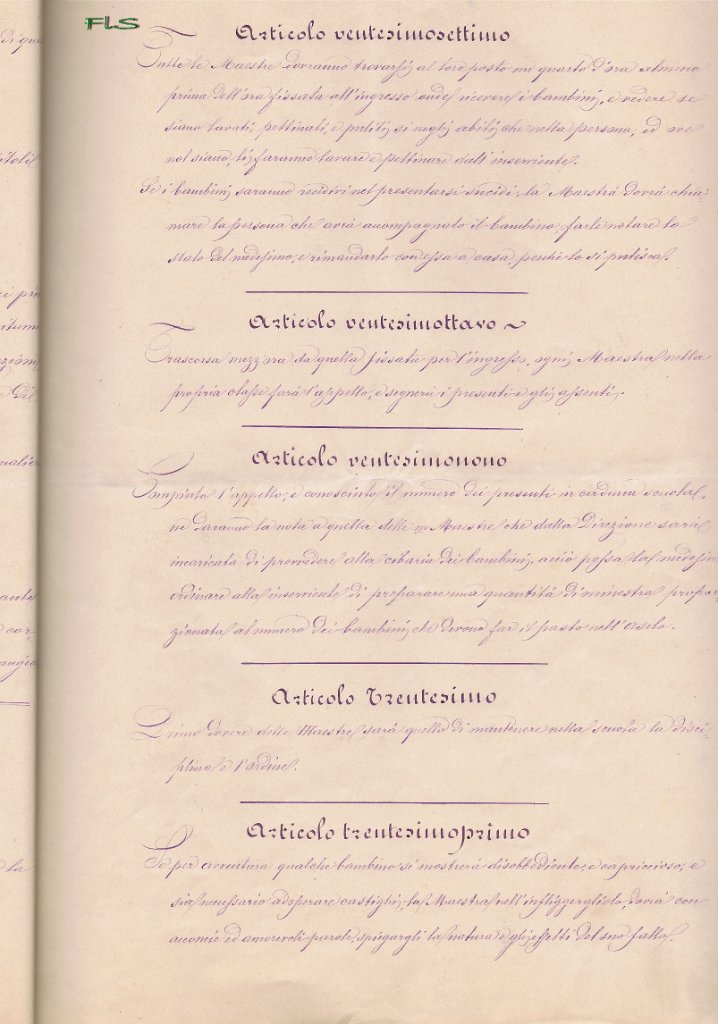 FLS
Articolo ventesimosettimo
Tutte le Maestre dovranno trovarsi al loro posto un quarto d'ora almeno
prima dell'ora fissata all'ingresso onde ricevere i bambini, e vedere se
siano lavati, pettinati, e puliti sì negli abiti, che nella persona, ed ove
nol siano, li faranno lavare e pettinare dall'inserviente.
Se i bambini saranno recidivi nel presentarsi sucidi, la Maestra dovrà chia-
mare la persona che avrà accompagnato il bambino, farle notare lo
stato del medesimo, e rimandarlo con essa a casa, perchè lo si pulisca.
Articolo ventesimottavo
Trascorsa mezz'ora da quella fissata per l'ingresso, ogni Maestra nella
propria classe farà l'appello, e segnerà i presenti e gli assenti.
Articolo ventesimonono
Compiuto l'appello, e conosciuto il numero dei presenti in cadauna scuola,
ne daranno la nota a quella delle Maestre che dalla Direzione sarà
incaricata di provvedere alla cibaria dei bambini, acciò possa la medesim
ordinare alla inserviente di preparare una quantità di minestra propor
zionata al numero dei bambini che devono far il pasto nell'Asilo.
Articolo Trentesimo
Primo dovere delle Maestre sarà quello di mantenere nella scuola la disci-
plina e l'ordine.
Articolo trentesimoprimo
Se per avventura qualche bambino si mostrerà disobbediente, e capriccioso, e
sia necessario adoperare castighi, la Maestra nell'infliggerglielo, dovrà con
acconcie ed amorevoli parole, spiegargli la natura e gli effetti del suo fallo.